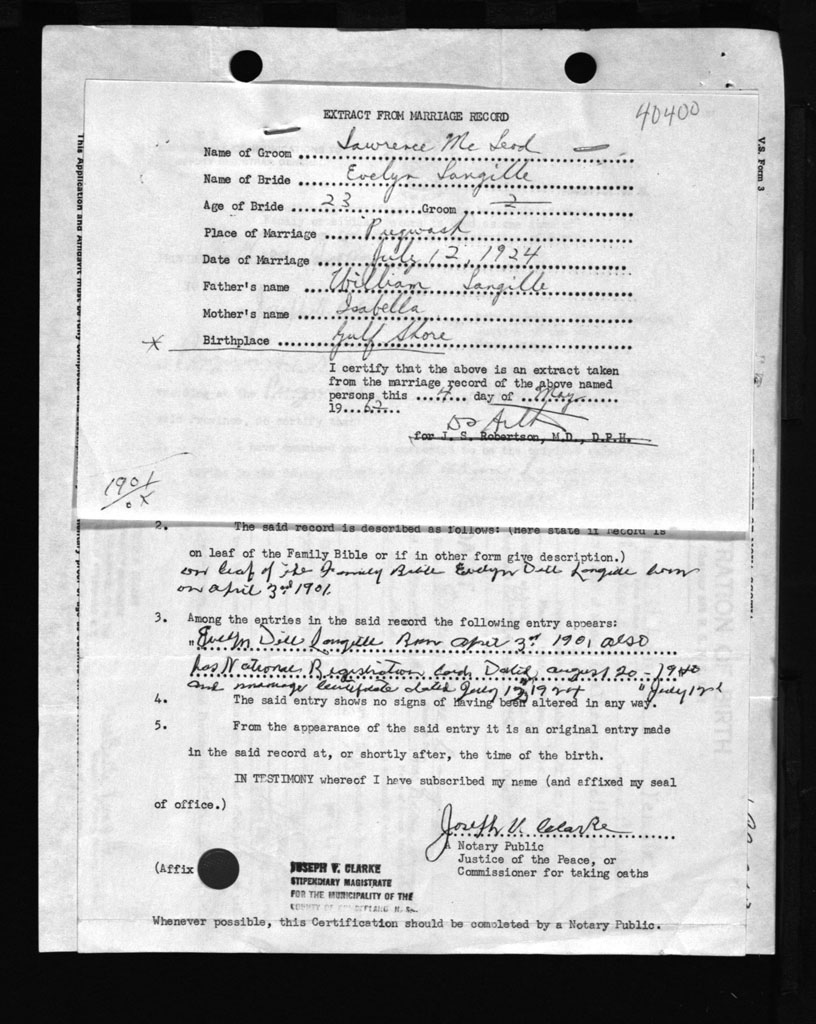 40400
EXTRACT FROM MARRIAGE RECORD
Name of Groom Lawrence Mc Leod
Name of Bride Evelyn Langille
Age of Bride 23 Groom 2
Place of Marriage Pugwash
Date of Marriage July 12, 1924
Father's name William Langille
Mother's name Isabella
Birthplace Gulf Shore
I certify that the above is an extract taken
from the marriage record of the above named
persons this 4 day of May
1962
for J. S. Robertson, M.D., D.P.H.
V.S. Form 3
2. The said record is described as follows: (Here state if Record is
on leaf of the Family Bible or if in other form give description.)
on leaf of the Family Bible Evelyn Dell Langille born
on april 3rd 1901.
3. Among the entries in the said record the following entry appears:
"Evelyn Dell Langille Born april 3rd 1901 also
has National Registration Card Dated august 20 - 1940
and marriage certificate dated July 12 1924 "July 12nd
4. The said entry shows no signs of having been altered in any way.
5. From the appearance of the said entry it is an original entry made
in the said record at, or shortly after, the time of the birth.
IN TESTIMONY whereof I have subscribed my name (and affixed my seal
of office.)
Joseph V. Clarke
A Notary Public
Justice of the Peace, or
Commissioner for taking oaths
(Affix
JOSEPH V. CLARKE
STIPENDIARY MAGISTRATE
FOR THE MUNICIPALITY OF THE
COUNTY OF CUMBERLAND N. S.
Whenever possible, this Certification should be completed by a Notary Public.